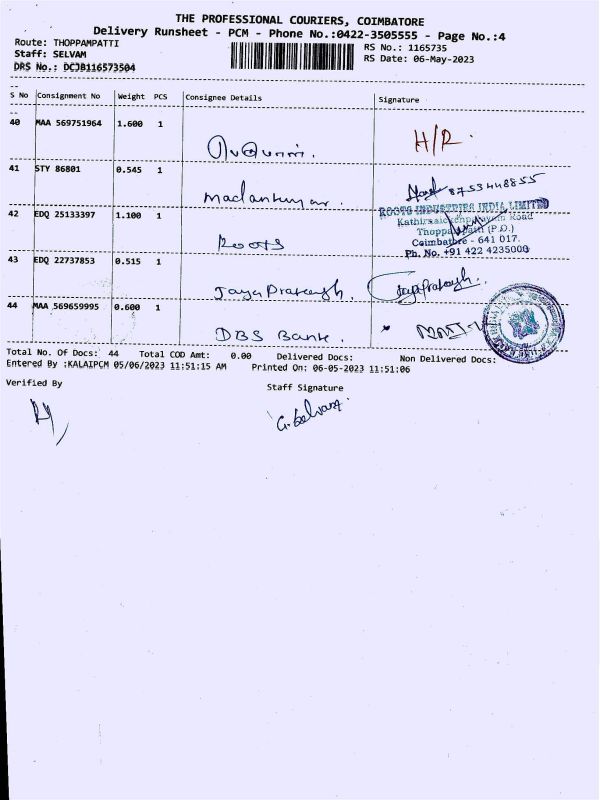 THE PROFESSIONAL COURIERS, COIMBATORE
Delivery Runsheet - PCM - Phone No.:0422-3505555 - Page No.:4
Route: THOPPAMPATTI RS No.: 1165735
Staff: SELVAM RS Date: 06-May-2023
DRS No.: DCJB116573504
S No Consignment No Weight PCS Consignee Details Signature
40 MAA 569751964 1.600 1
H/R.
41 STY 86801 0.545 1
8753448855
ROOTS INDUSTRIES INDIA LIMITED
42 EDQ 25133397 1.100 1
Thoppampatti (P.O.)
Coimbatore - 641 017.
Roots
Ph. No. +91 422 4235000
43 EDQ 22737853 0.515 1
Jaya Prakash. Jayaprakash.
44 MAA 569659995 0.600 1
DBS Bank.
Total No. Of Docs: 44 Total COD Amt: 0.00 Delivered Docs: Non Delivered Docs:
Entered By :KALAIPCM 05/06/2023 11:51:15 AM Printed On: 06-05-2023 11:51:06
Verified By Staff Signature
G. Selvam